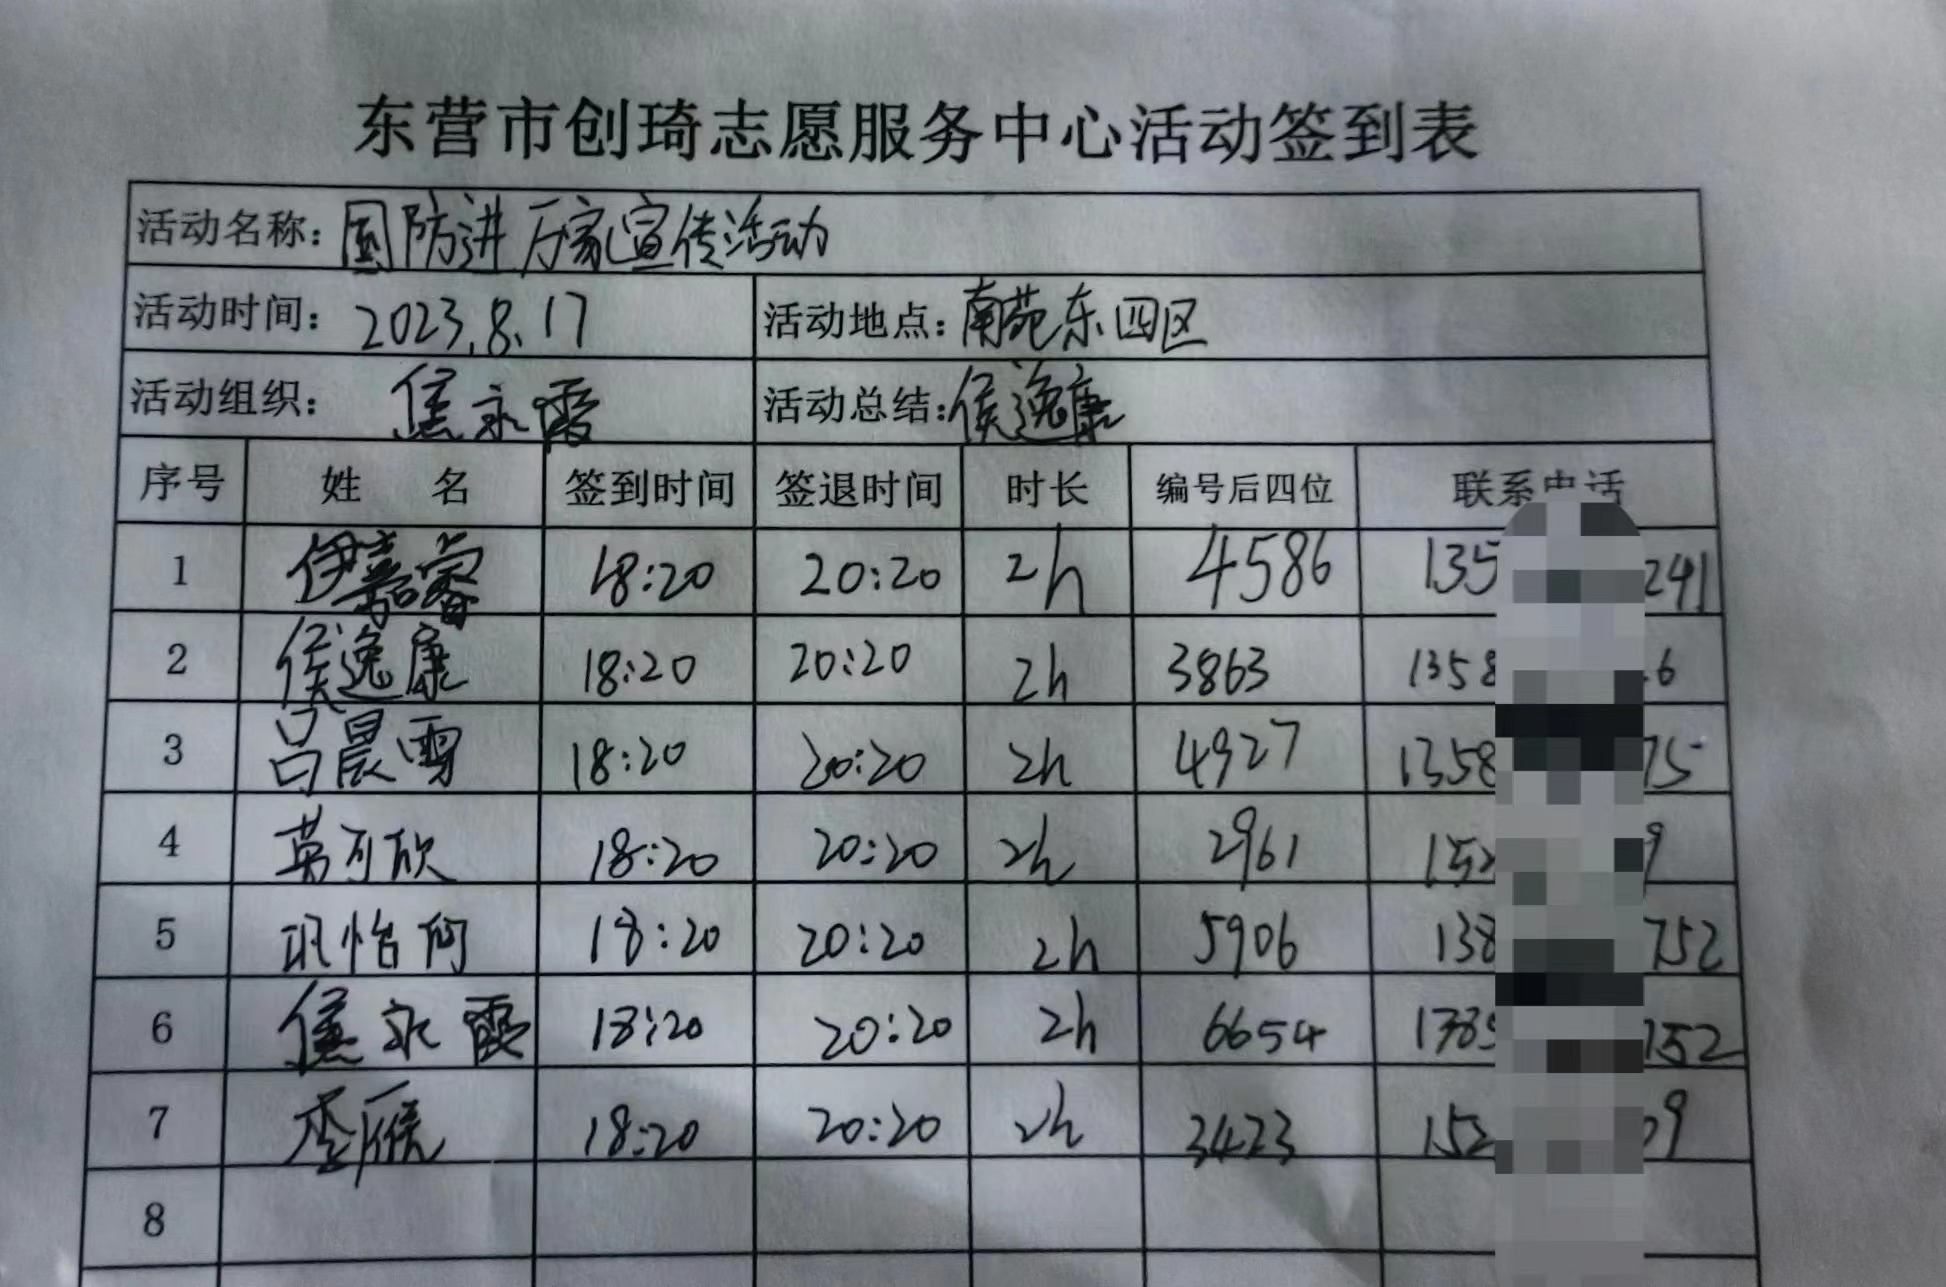 东营市创琦志愿服务中心活动签到表
活动名称：国防进万家宣传活动
活动时间：2023.8.17 活动地点：南苑东四区
活动组织：焦永霞 活动总结：侯逸康
序号 姓名 签到时间 签退时间 时长 编号后四位 联系电话
1 伊嘉睿 18:20 20:20 2h 4586 135 241
2 侯逸康 18:20 20:20 2h 3863 1358 6
3 吕晨雪 18:20 20:20 2h 4927 1358 75
4 可欣 18:20 20:20 2h 2961 152 9
5 巩怡 18:20 20:20 2h 5906 138 752
6 焦永霞 18:20 20:20 2h 6654 1385 152
7 李雁 18:20 20:20 2h 3423 152 09
8